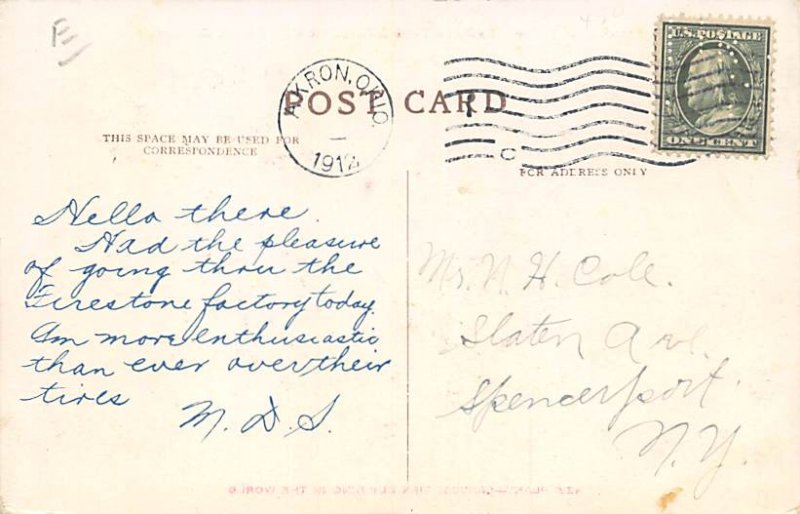 POST CARD
AKRON, OHIO
1912
U.S. POSTAGE
ONE CENT
THIS SPACE MAY BE USED FOR
CORRESPONDENCE
FOR ADDRESS ONLY
Hello there.
Had the pleasure
of going thru the
Firestone factory today.
Am more enthusiastic
than ever over their
tires
M. D. S.
Mr. N. H. Cole.
Slaten Ave.
Spencerport.
N.Y.